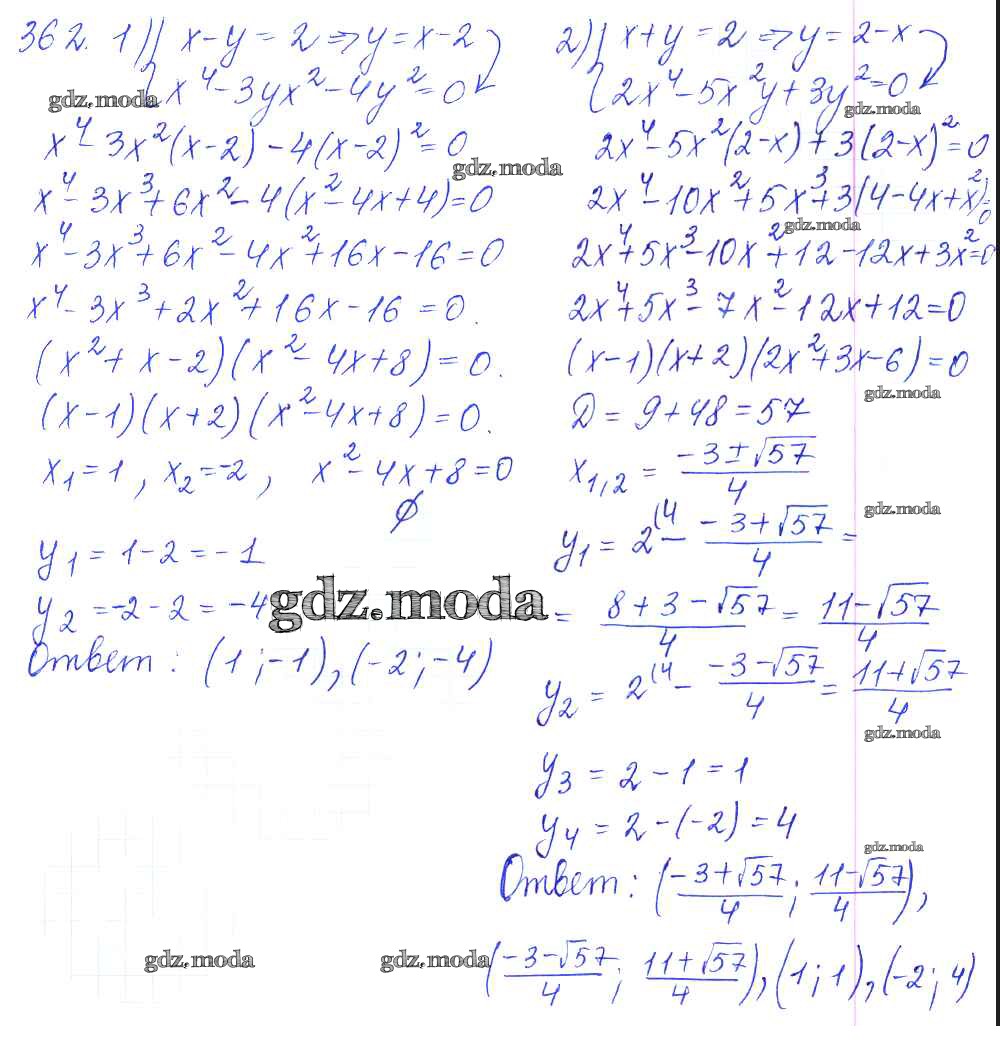 362. 1) { x-y=2 ⇒ y=x-2
x⁴-3yx²-4y²=0
gdz.moda
x⁴-3x²(x-2)-4(x-2)²=0
gdz.moda
x⁴-3x³+6x²-4(x²-4x+4)=0
x⁴-3x³+6x²-4x²+16x-16=0
x⁴-3x³+2x²+16x-16=0.
(x²+x-2)(x²-4x+8)=0.
(x-1)(x+2)(x²-4x+8)=0.
x₁=1, x₂=-2, x²-4x+8=0
∅
y₁=1-2=-1
y₂=-2-2=-4
gdz.moda
Ответ: (1;-1),(-2;-4)
2) { x+y=2 ⇒ y=2-x
2x⁴-5x²y+3y²=0
gdz.moda
2x⁴-5x²(2-x)+3(2-x)²=0
2x⁴-10x²+5x³+3(4-4x+x²)=0
gdz.moda
2x⁴+5x³-10x²+12-12x+3x²=0
2x⁴+5x³-7x²-12x+12=0
(x-1)(x+2)(2x²+3x-6)=0
gdz.moda
D=9+48=57
x₁,₂ = (-3±√57)/4
gdz.moda
y₁ = 2⁽⁴ - (-3+√57)/4 =
= (8+3-√57)/4 = (11-√57)/4
y₂ = 2⁽⁴ - (-3-√57)/4 = (11+√57)/4
gdz.moda
y₃ = 2-1=1
y₄ = 2-(-2)=4
gdz.moda
Ответ: ((-3+√57)/4; (11-√57)/4),
gdz.moda gdz.moda
((-3-√57)/4; (11+√57)/4), (1;1), (-2;4)